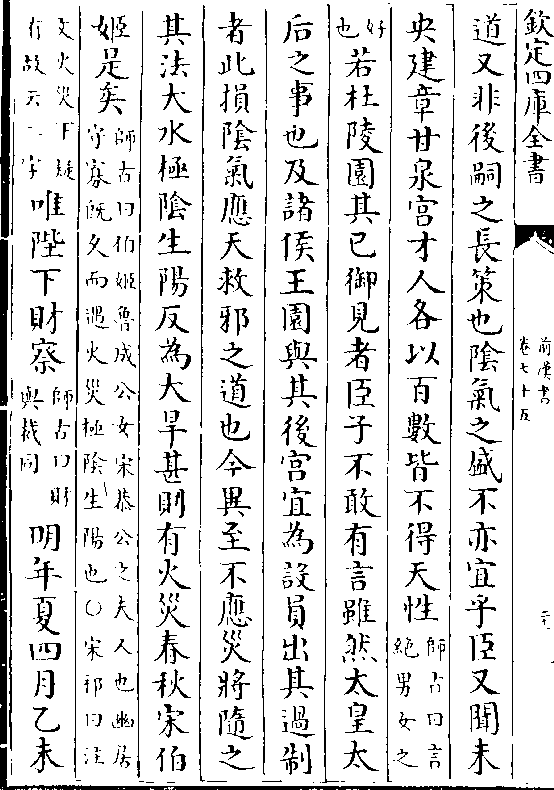 欽定四庫全書
前漢書
卷七十五
道又非後嗣之長策也陰氣之盛不亦宜乎臣又聞未
央建章甘泉宮才人各以百數皆不得天性師古曰言
絶男女之
好
也若杜陵園其已御見者臣子不敢有言雖然太皇太
后之事也及諸侯王園與其後宮宜為設員出其過制
者此損陰氣應天救邪之道也今異至不應災將隨之
其法大水極陰生陽反為大旱甚則有火災春秋宋伯
姬是矣師古曰伯姬魯成公女宋恭公之夫人也幽居
守寡既久而遇火災極陰生陽也〇宋祁曰注
文火災下疑
有故云一字唯陛下財察師古曰財
與裁同明年夏四月乙未